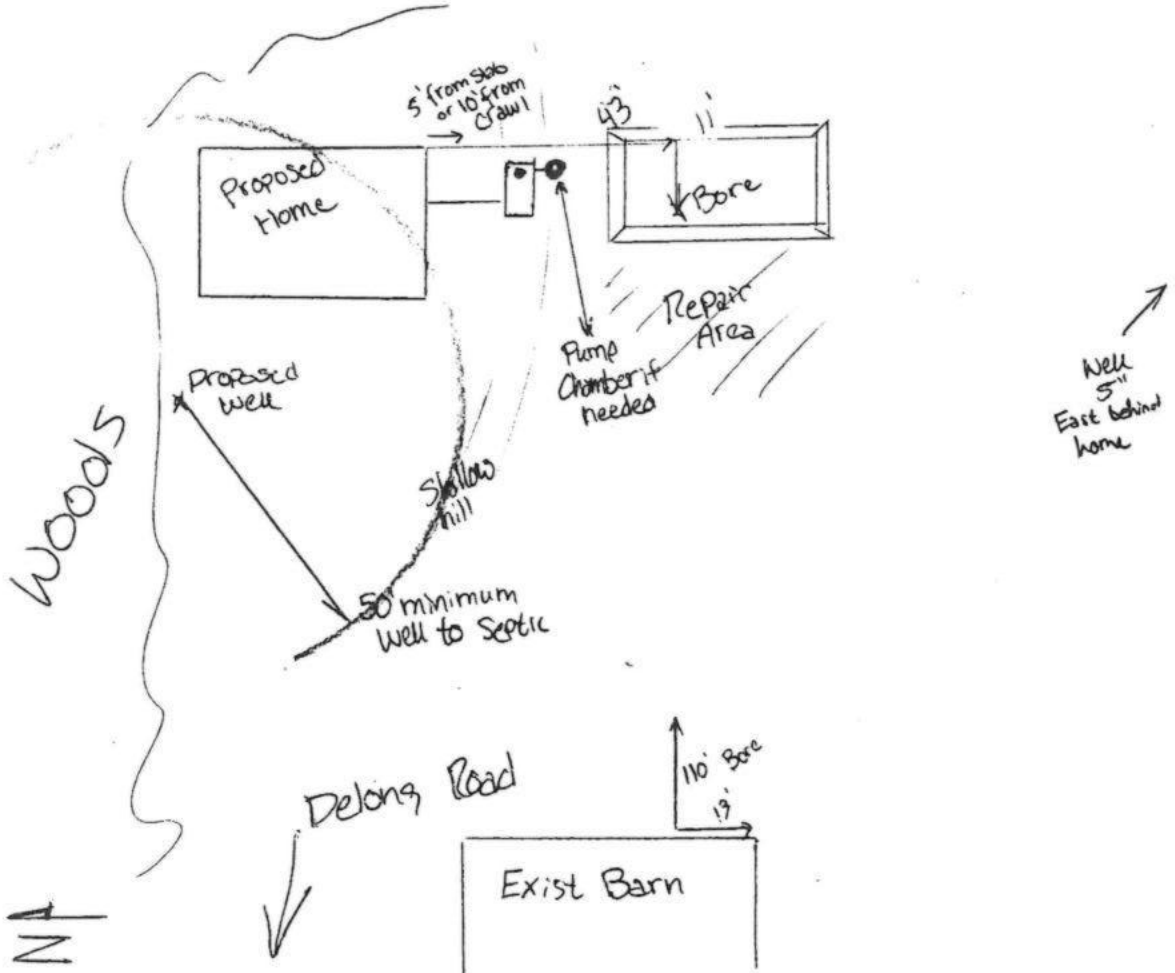 5' from Slab
or 10' from
Crawl
43'
11'
Proposed
Home
Bore
Repair
Area
Pump
Chamber if
needed
Well
5"
East behind
home
Proposed
Well
Woods
Shallow
hill
50' minimum
Well to Septic
110' Bore
13'
Delong Road
Exist Barn
N